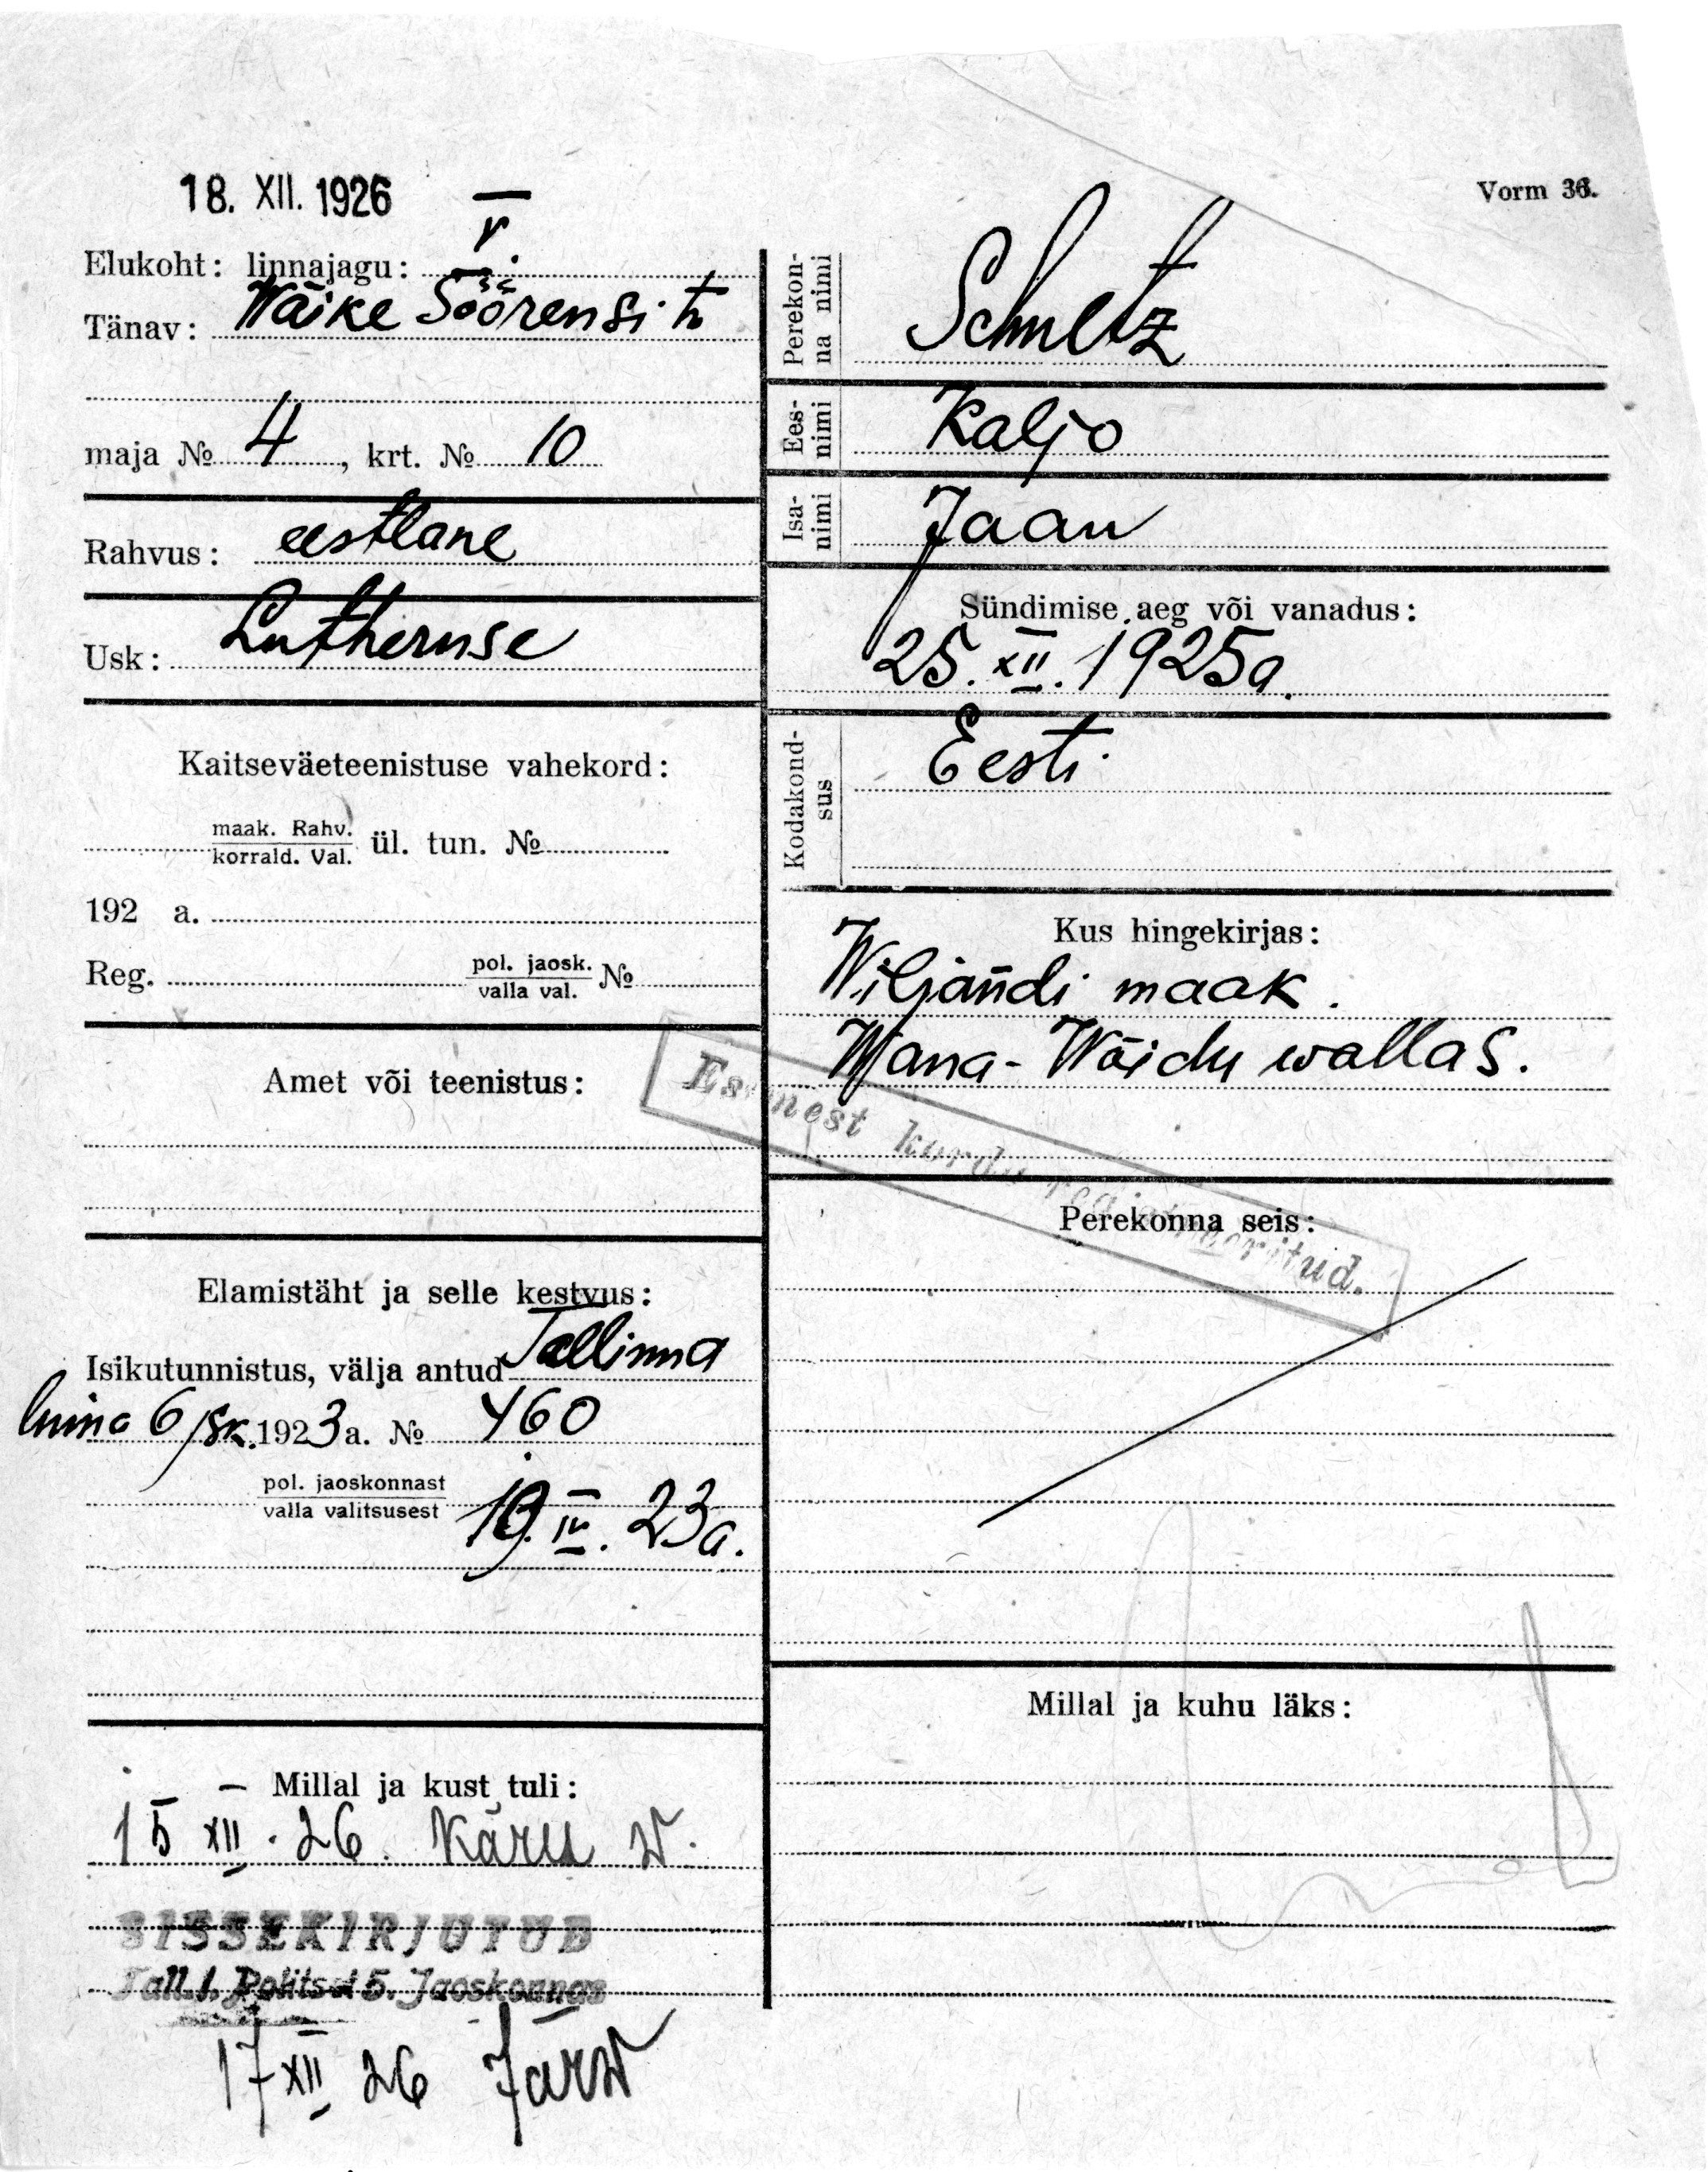 18. XII. 1926
Vorm 36.
Elukoht: linnajagu: V.
Tänav: Wäike Söörensi tn
maja № 4, krt. № 10
Rahvus: eestlane
Usk: Lutheruse
Kaitseväeteenistuse vahekord:
maak. Rahv.
korrald. Val. ül. tun. №
192 a.
Reg. pol. jaosk. №
valla val.
Amet või teenistus:
Elamistäht ja selle kestvus:
Isikutunnistus, välja antud Tallinna
linna 6 jsk. 1923 a. № 460
pol. jaoskonnast
valla valitsusest 19. IV. 23a.
Millal ja kust tuli:
15 XII. 26. Käru w.
SISSEKIRJUTUD
Tall. l. Politsei 5. Jaoskonnas
17 XII 26 Järw
Perekonna nimi Schultz
Eesnimi Kaljo
Isanimi Jaan
Sündimise aeg või vanadus:
25. XII. 1925a.
Kodakondsus Eesti
Kus hingekirjas:
Wiljandi maak.
Wana-Wõidu wallas.
Esimest korda registreeritud.
Perekonna seis:
Millal ja kuhu läks: